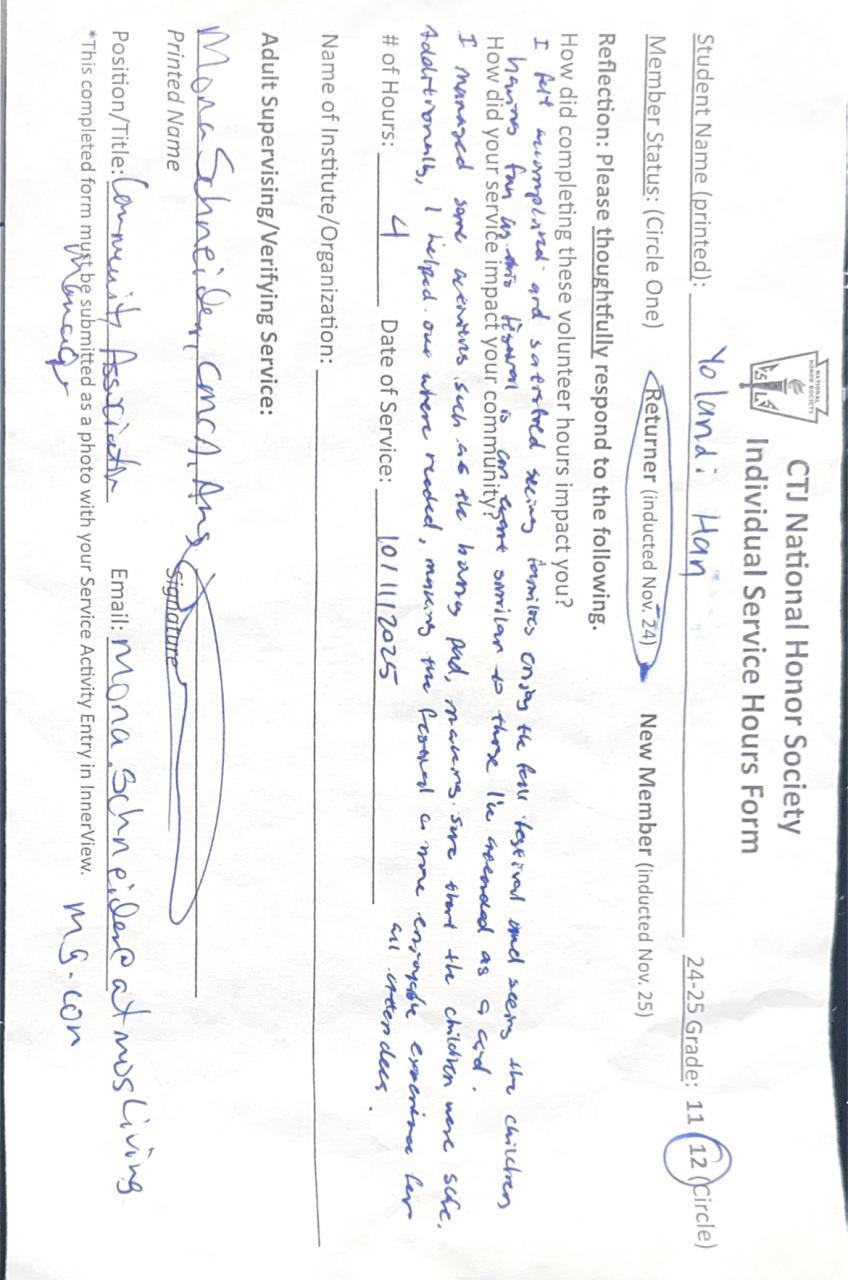 NATIONAL HONOR SOCIETY
CTJ National Honor Society
Individual Service Hours Form
Student Name (printed): Yolandi Han 24-25 Grade: 11 12 (Circle)
Member Status: (Circle One) Returner (inducted Nov. 24) New Member (inducted Nov. 25)
Reflection: Please thoughtfully respond to the following.
How did completing these volunteer hours impact you?
I felt accomplished and satisfied seeing families enjoy the fall festival and seeing the children
having fun as this festival is an event similar to those I've attended as a kid.
How did your service impact your community?
I managed some activities such as the bouncy pad, making sure that the children were safe.
Additionally, I helped out where needed, making the festival a more enjoyable experience for
all attendees.
# of Hours: 4 Date of Service: 10/11/2025
Name of Institute/Organization:
Adult Supervising/Verifying Service:
Mona Schneider, CMCA, AMS
Printed Name Signature
Position/Title: Community Association Email: mona.schneider@atmosliving
Manager mg.com
*This completed form must be submitted as a photo with your Service Activity Entry in InnerView.